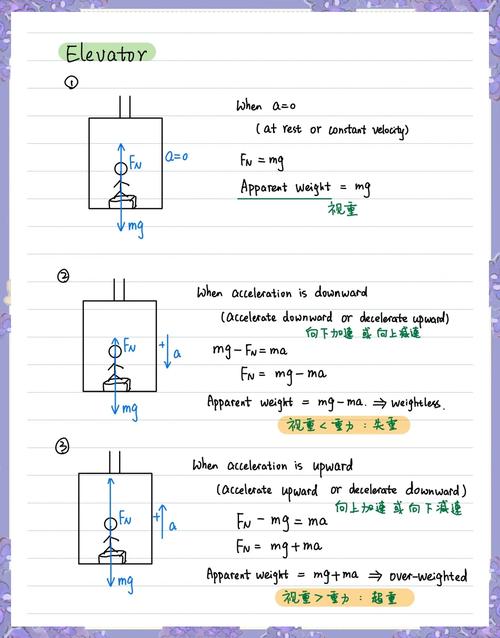 Elevator
①
When a=0
(at rest or constant velocity)
FN
a=0
FN = mg
Apparent weight = mg
視重
mg
②
When acceleration is downward
(Accelerate downward or decelerate upward)
向下加速 或 向上減速
FN
+
a
mg-FN=ma
FN = mg-ma
Apparent weight = mg-ma. ⇒ weightless.
mg
視重<重力:失重
③
When acceleration is upward
(Accelerate upward or decelerate downward)
向上加速 或 向下減速
FN
+
a
FN - mg = ma
FN = mg+ma
Apparent weight = mg+ma ⇒ over-weighted
mg
視重>重力:超重